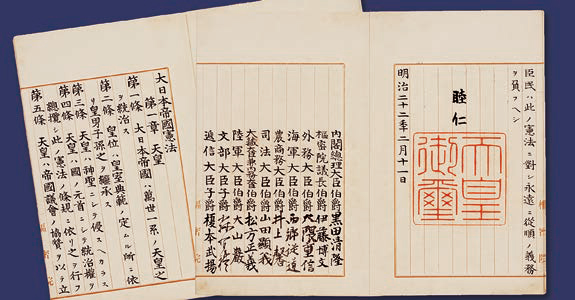 臣民ハ此ノ憲法ニ對シ永遠ニ從順ノ義務
ヲ負フヘシ
睦仁
天皇
御璽
明治二十二年二月十一日
內閣總理大臣伯爵 黒田清隆
樞密院議長伯爵 伊藤博文
外務大臣伯爵 大隈重信
海軍大臣伯爵 西郷從道
農商務大臣伯爵 井上馨
司法大臣伯爵 山田顯義
大藏大臣兼內務大臣伯爵 松方正義
陸軍大臣伯爵 大山巖
文部大臣子爵 森有禮
遞信大臣子爵 榎本武揚
大日本帝國憲法
第一章 天皇
第一條 大日本帝國ハ萬世一系ノ天皇之
ヲ統治ス
第二條 皇位ハ皇室典範ノ定ムル所ニ依
リ皇男子孫之ヲ繼承ス
第三條 天皇ハ神聖ニシテ侵スヘカラス
第四條 天皇ハ國ノ元首ニシテ統治權ヲ
總攬シ此ノ憲法ノ條規ニ依リ之ヲ行フ
第五條 天皇ハ帝國議會ノ協贊ヲ以テ立